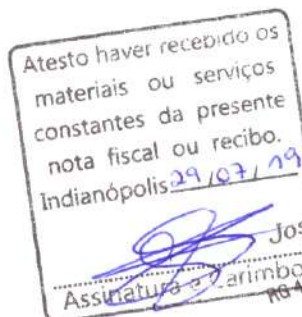 Atesto haver recebido os
materiais ou serviços
constantes da presente
nota fiscal ou recibo.
Indianópolis 29/07/19
Jos
Assinatura e Carimbo
RG 4